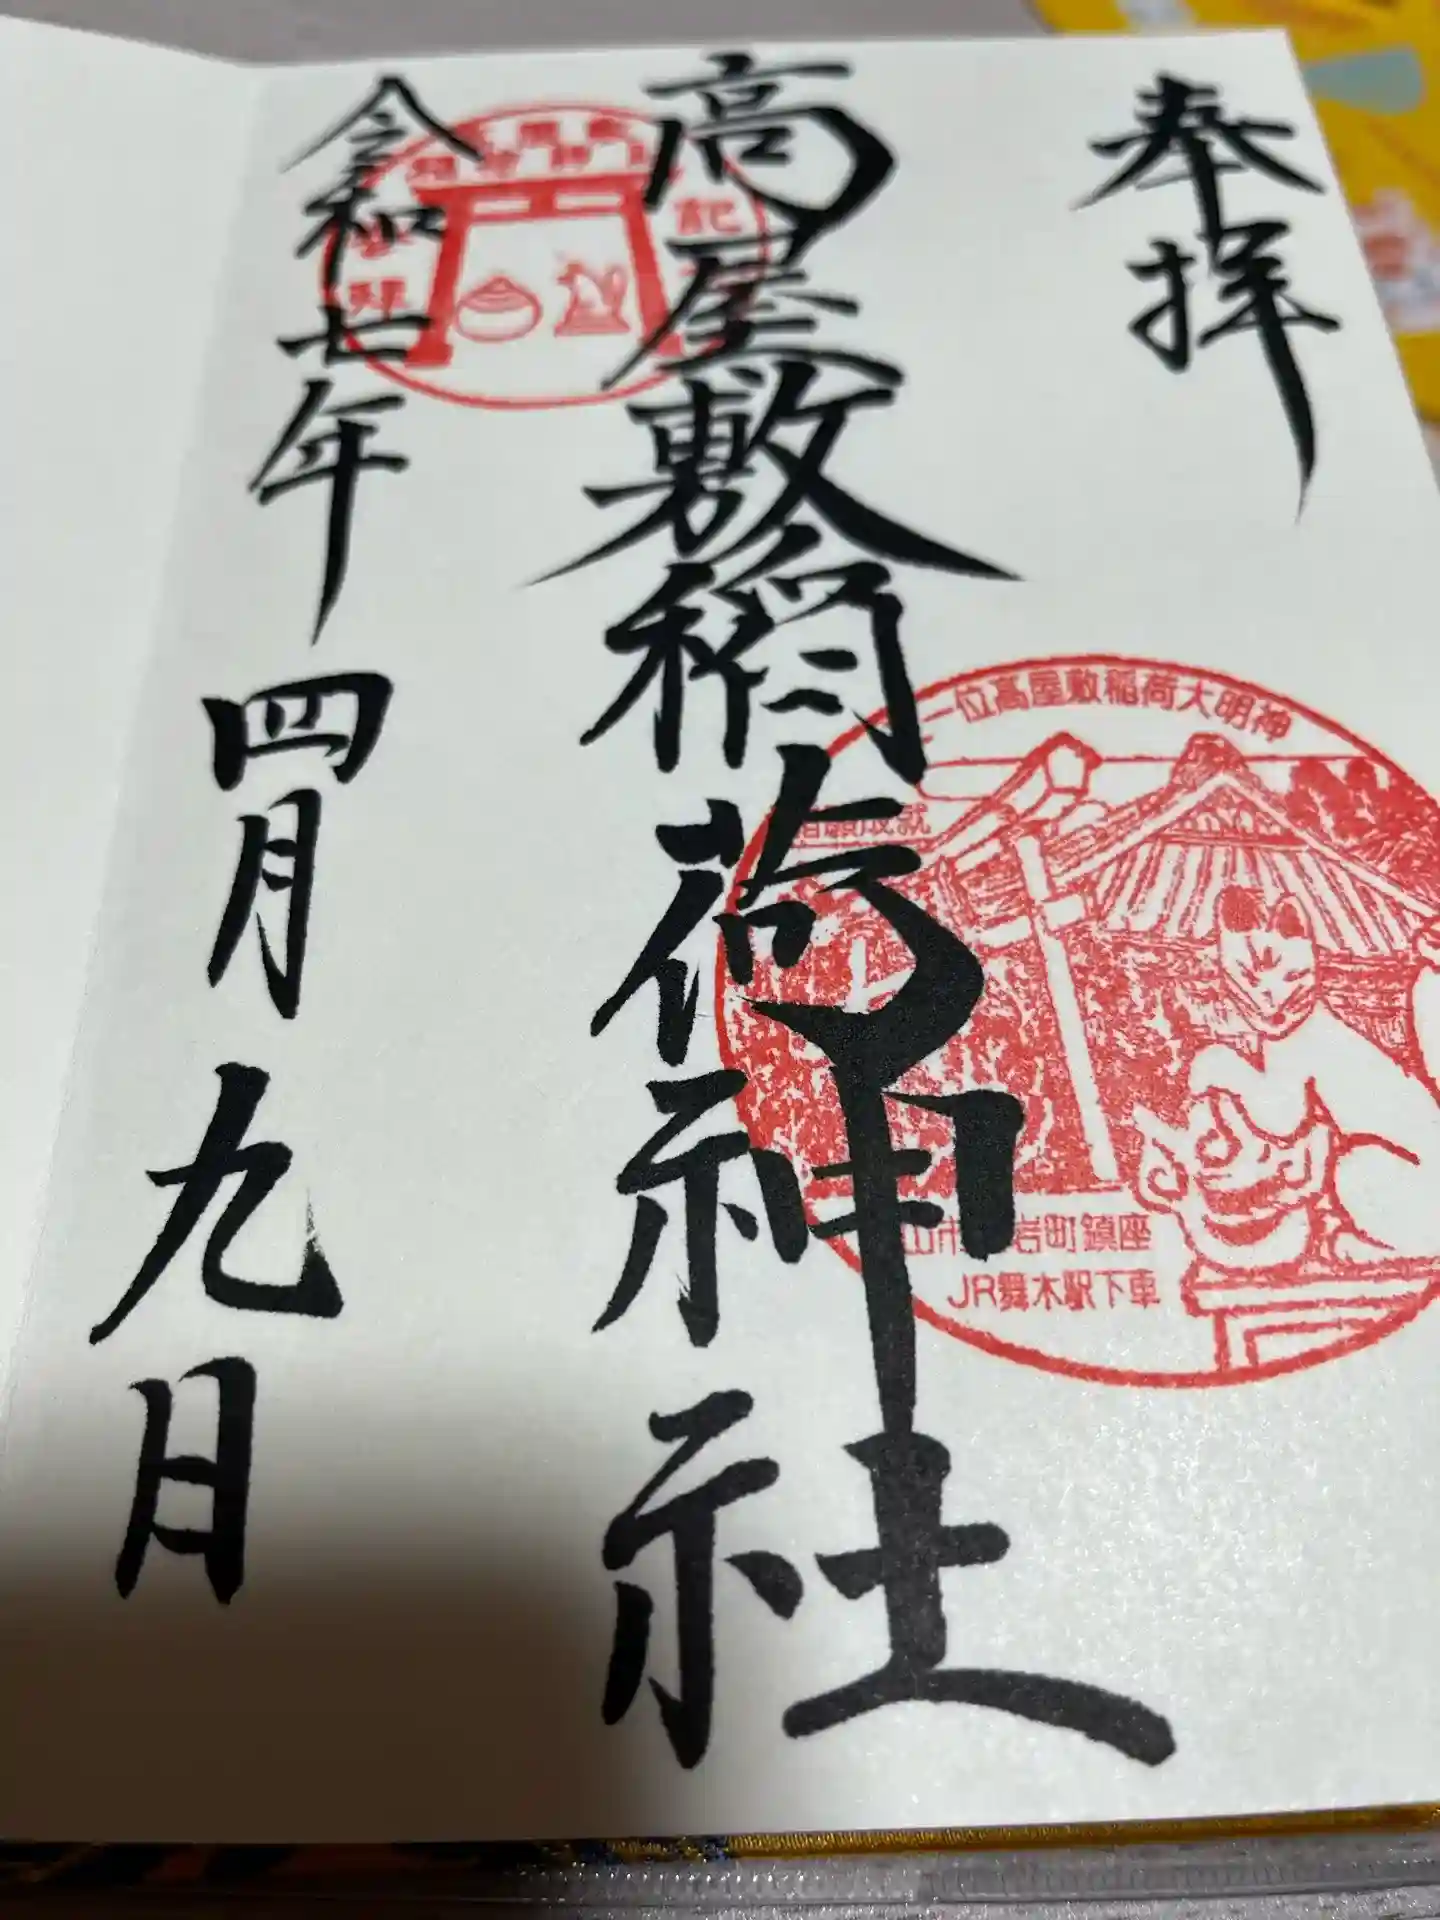 奉拝
高屋敷稲荷神社
令和七年四月九日
一位高屋敷稲荷大明神
願成就
岩町鎮座
JR舞木駅下車
記
拝